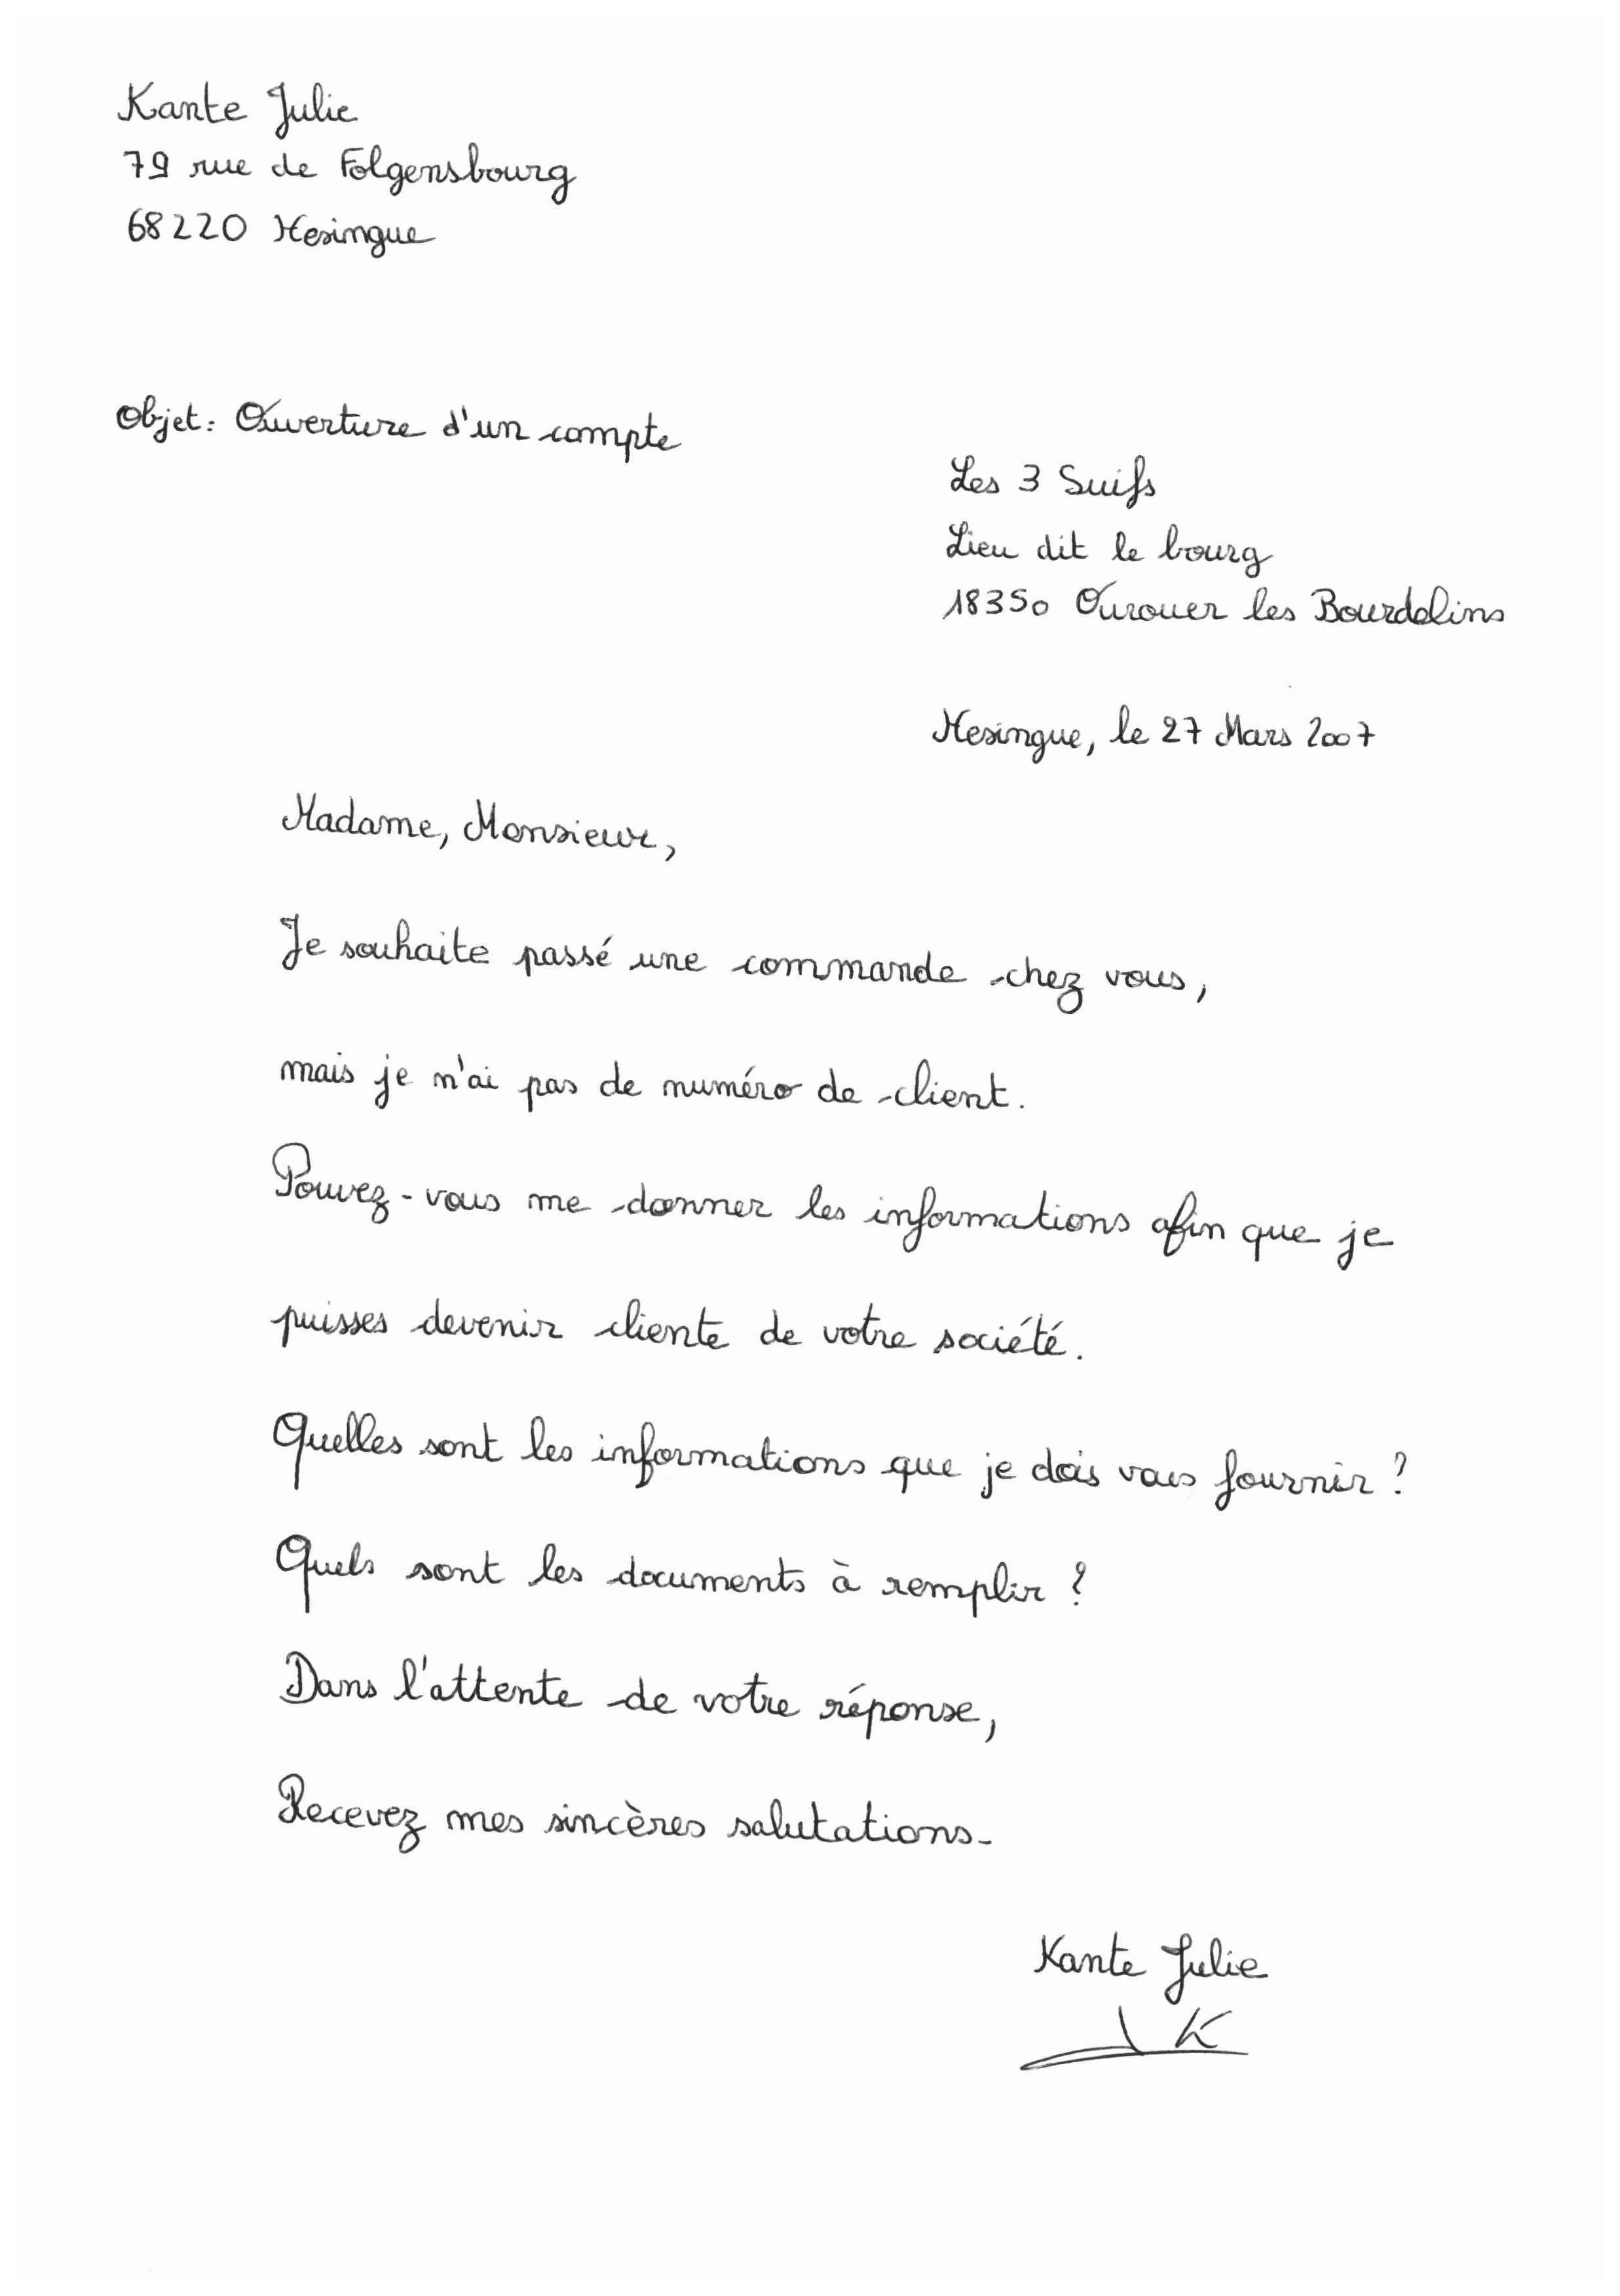 Kante Julie
79 rue de Folgensbourg
68220 Hesingue
Objet: Ouverture d'un compte
Les 3 Suifs
Lieu dit le bourg
18350 Ourouer les Bourdelins
Hesingue, le 27 Mars 2007
Madame, Monsieur,
Je souhaite passé une commande chez vous,
mais je n'ai pas de numéro de client.
Pouvez-vous me donner les informations afin que je
puisses devenir cliente de votre société.
Quelles sont les informations que je dois vous fournir ?
Quels sont les documents à remplir ?
Dans l'attente de votre réponse,
Recevez mes sincères salutations.
Kante Julie
JK